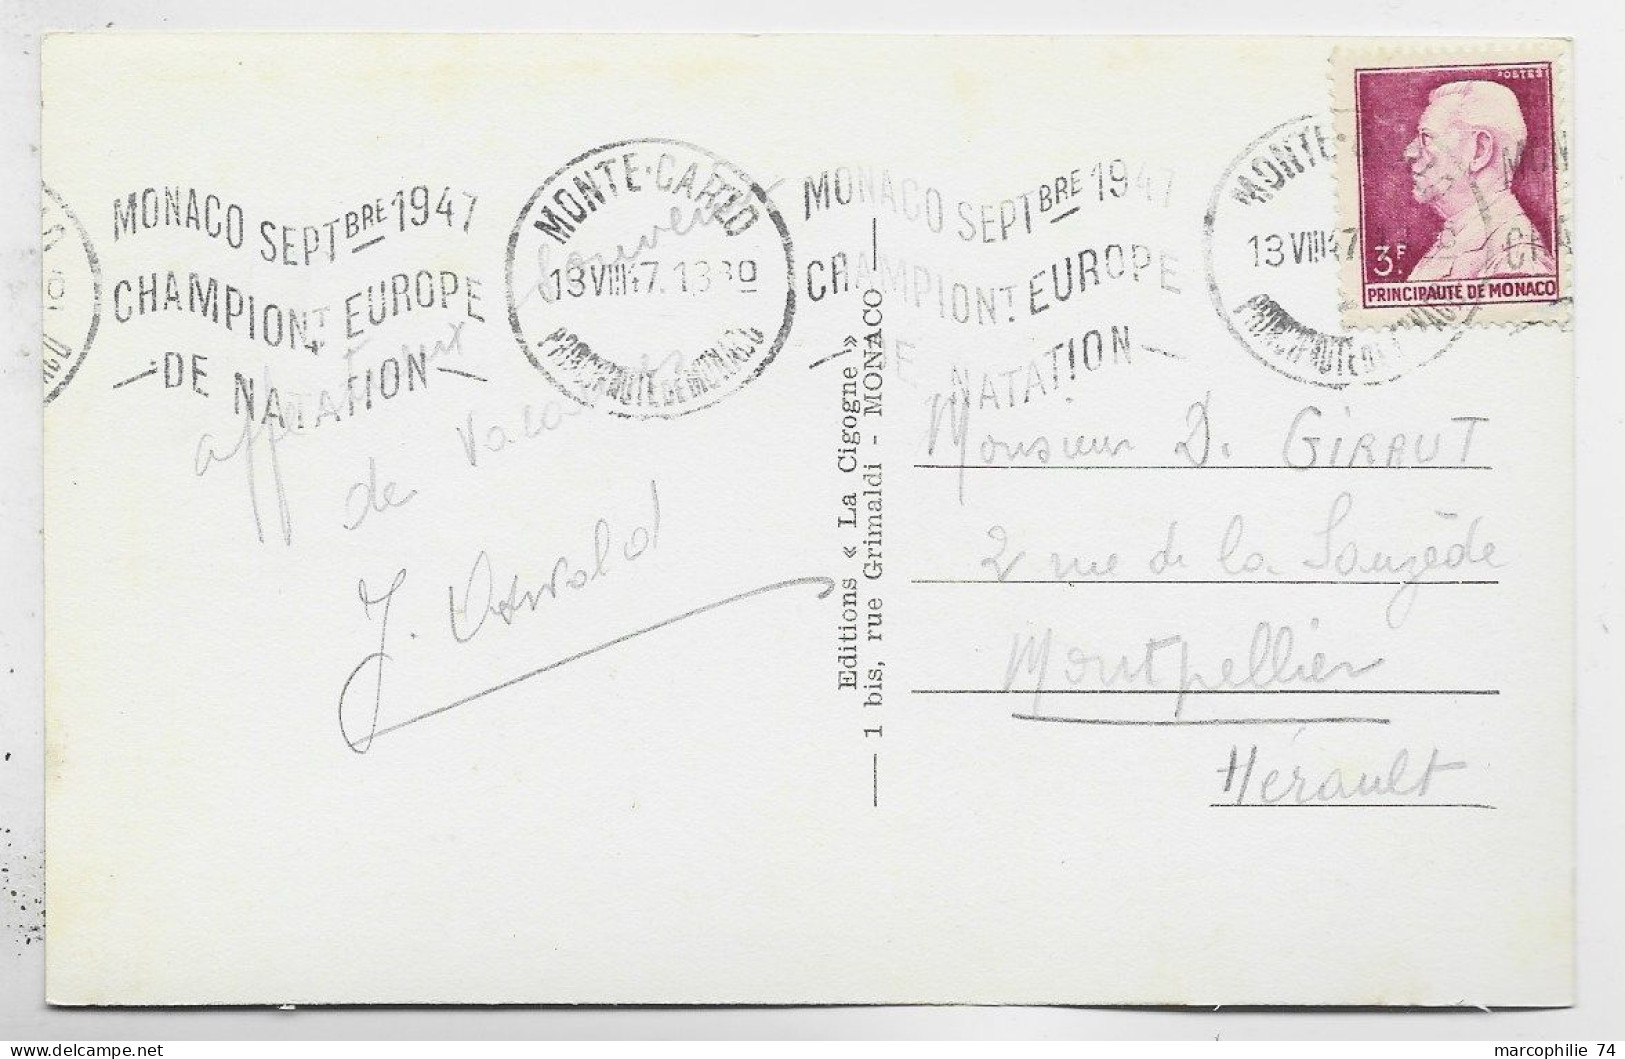 MONACO SEPTBRE 1947
CHAMPIONT EUROPE
DE NATATION
MONTE-CARLO
PRINCIPAUTÉ DE MONACO
MONACO SEPTBRE 1947
CHAMPIONT EUROPE
DE NATATION
MONTE-
13 VIII 47
POSTES
3F
PRINCIPAUTÉ DE MONACO
Souvenir
affectueux
de Vacances
J. Oswald
Editions « La Cigogne »
1 bis, rue Grimaldi - MONACO
Monsieur D. GIRAUT
2 rue de la
Montpellier
Hérault
marcophilie 74